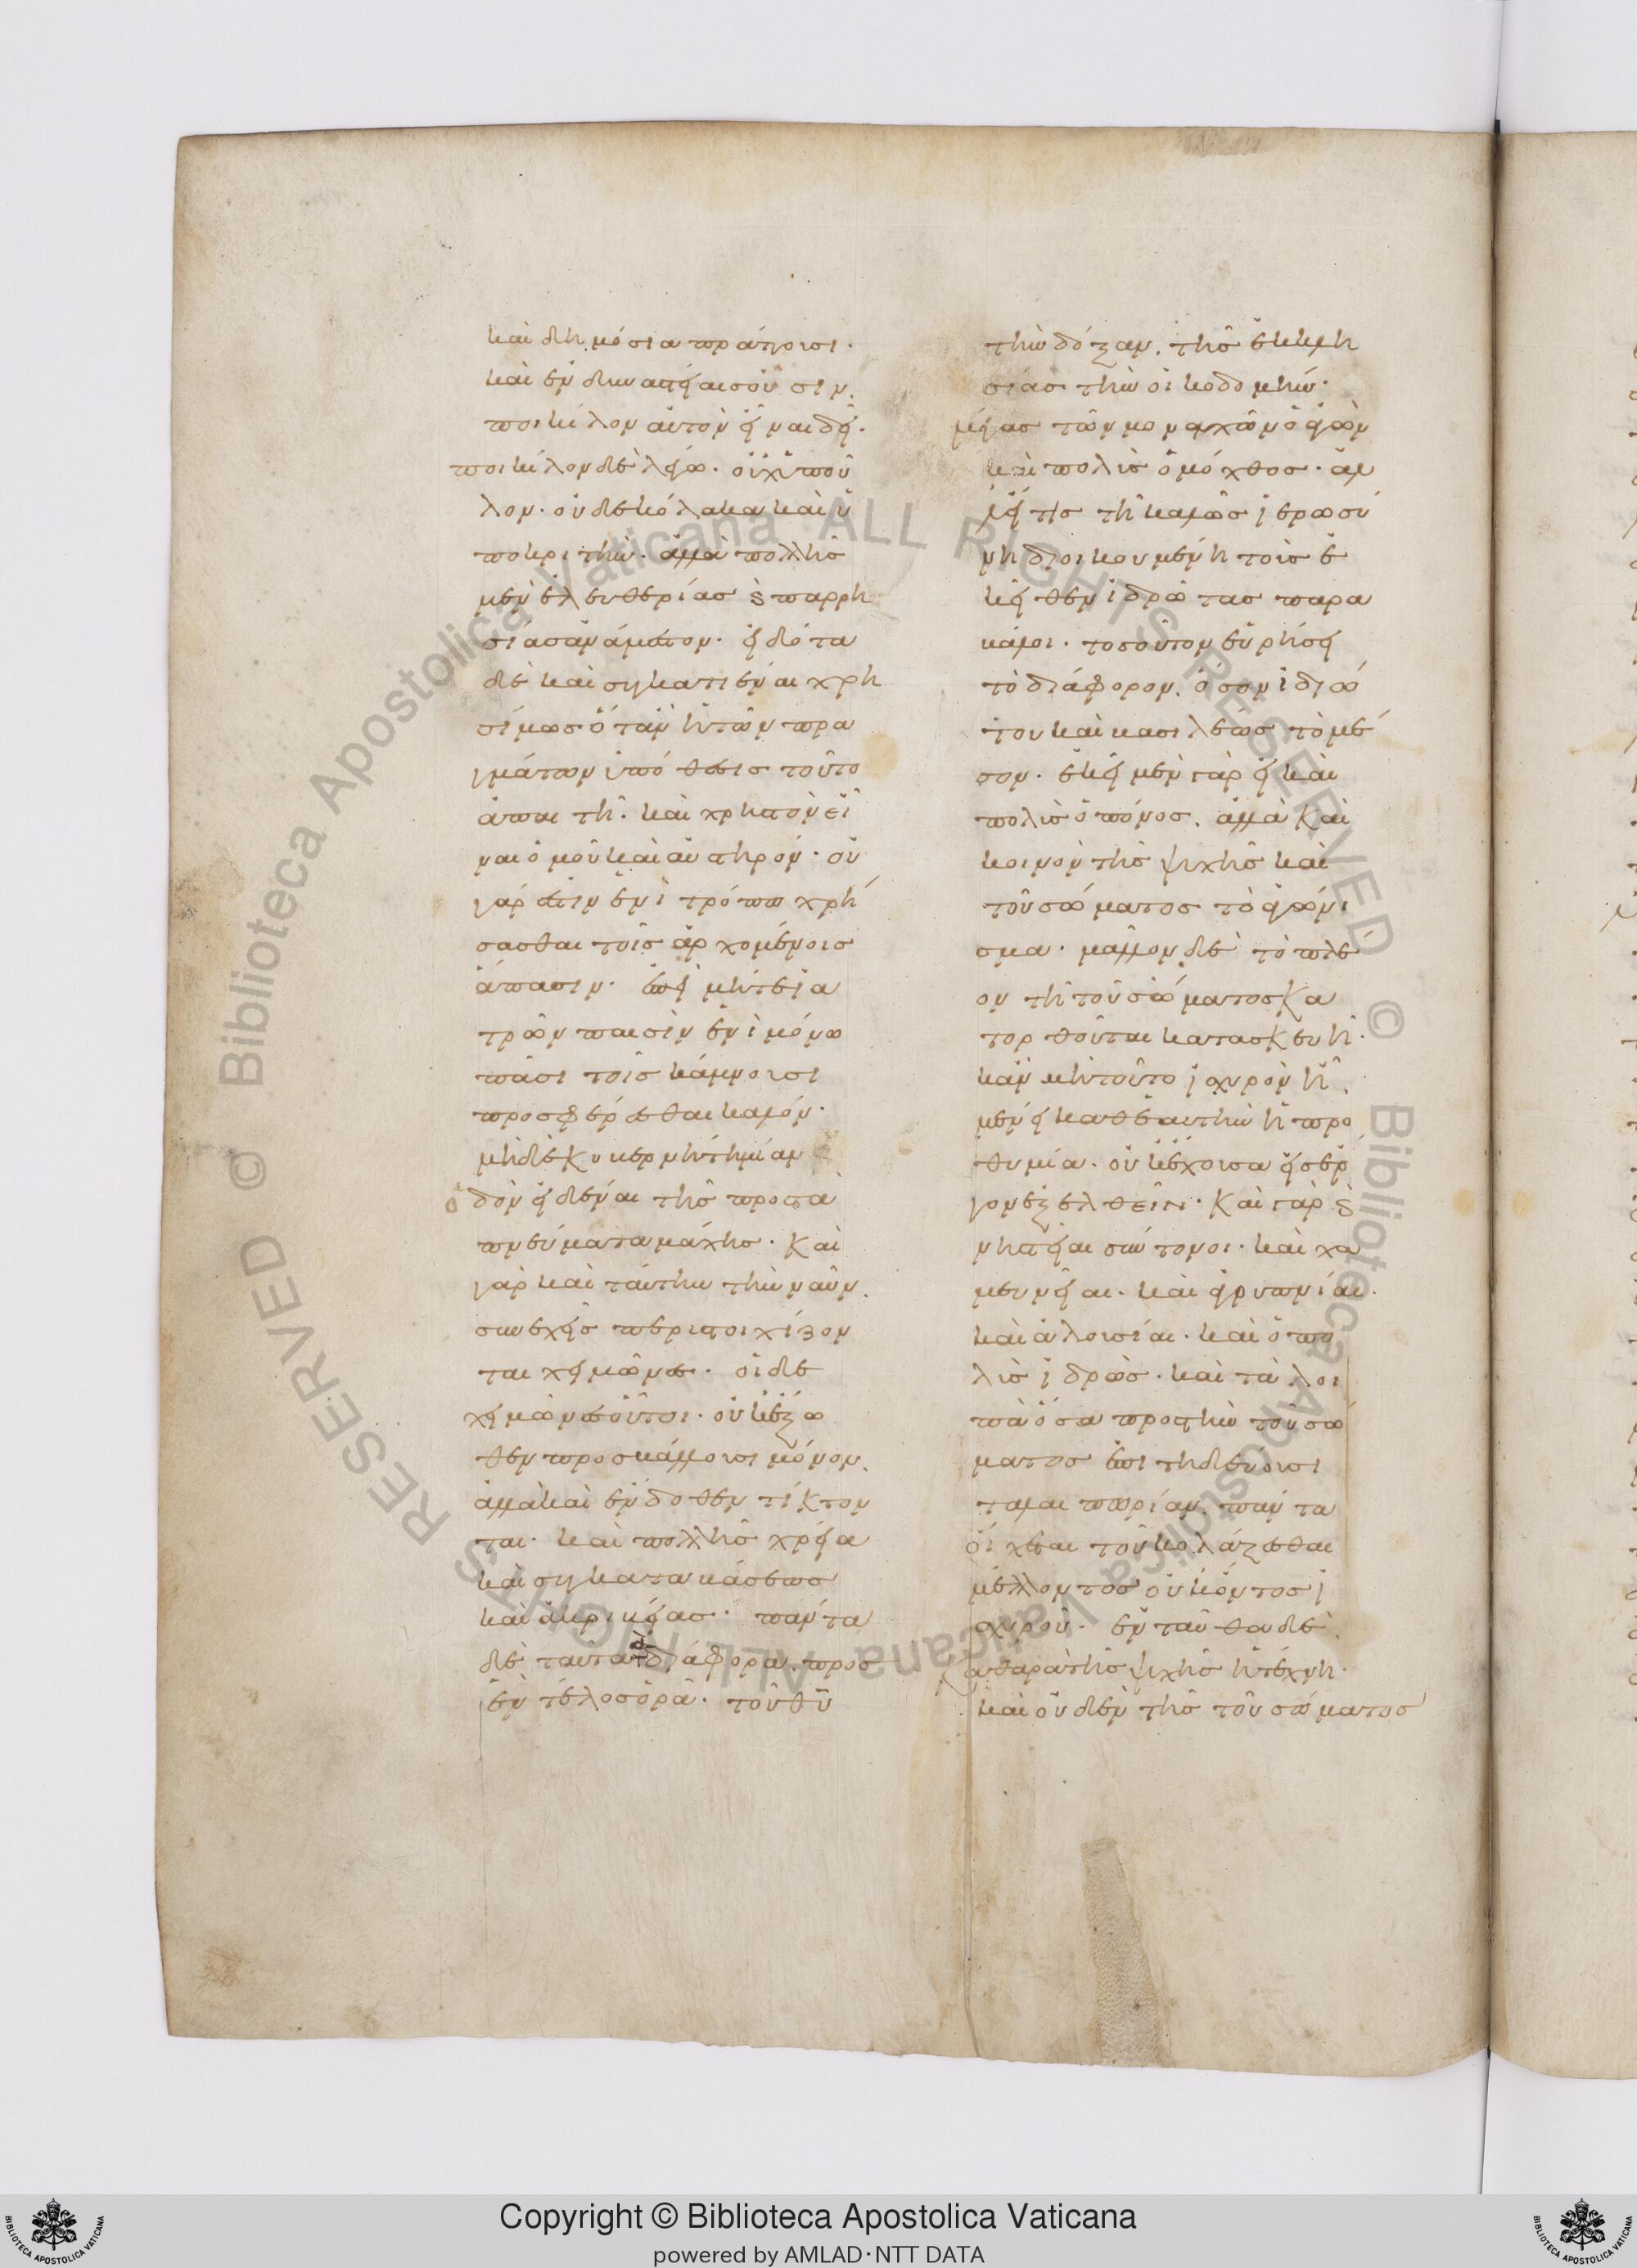 καὶ δημόσια πράττουσι·
καὶ ἐν δυναστείαις οὖσιν.
ποικίλον αὐτὸν εἶναι δεῖ·
ποικίλον δὲ λέγω· οὐχ ὕπου
λον· οὐδὲ κόλακα καὶ ὑ
ποκριτήν· ἀλλὰ πολλῆς
μὲν ἐλευθερίας ϗ παρρη
σίας ἀνάμεστον· εἰδότα
δὲ καὶ συγκατιέναι χρη
σίμως ὅταν ἡ τῶν πρα
γμάτων ὑπόθεσις τοῦτο
ἀπαιτῆ· καὶ χρηστὸν εἶ
ναι ὁμοῦ καὶ αὐστηρόν· οὐ
γάρ ἐστιν ἑνὶ τρόπω χρή
σασθαι τοῖς ἀρχομένοις
ἅπασιν· ἐπεὶ μήτε ἰα
τρῶν παισὶν ἑνὶ μόνω
πᾶσι τοῖς κάμνουσι
προσφέρεσθαι καλόν·
μηδὲ κυβερνήτη μίαν
ὁδὸν εἰδέναι τῆς πρὸς τὰ
πνεύματα μάχης· Καὶ
γὰρ καὶ ταύτην τὴν ναῦν.
συνεχεῖς περιστοιχίζον
ται χειμῶνες· οἱ δὲ
χειμῶνες οὗτοι· οὐκ ἔξω
θεν προσβάλλουσι μόνον.
ἀλλὰ καὶ ἔνδοθεν τίκτον
ται· καὶ πολλῆς χρεία
καὶ συγκαταβάσεως
καὶ ἀκριβείας· πάντα
δὲ ταῦτα τὰ διάφορα. πρὸς
ἓν τέλος ὁρᾶ· τοῦ θυ
τὴν δόξαν. τῆς ἐκκλη
σίας τὴν οἰκοδομήν·
μέγας τῶν μοναχῶν ὁ ἀγὼν
καὶ πολὺς ὁ μόχθος· ἀλλ
εἴ τις τῆ καλῶς ἱερωσύ
νη διοικουμένη τοὺς ἐ
κεῖθεν ἱδρῶτας παρα
βάλοι· τοσοῦτον εὑρήσει
τὸ διάφορον. ὅσον ἰδιώ
του καὶ βασιλέως τὸ μέ
σον· ἐκεῖ μὲν γὰρ εἰ καὶ
πολὺς ὁ πόνος. ἀλλὰ Καὶ
κοινὸν τῆς ψυχῆς καὶ
τοῦ σώματος τὸ ἀγώνι
σμα· μᾶλλον δὲ τὸ πλέ
ον τῆ τοῦ σώματος κα
τορθοῦται κατασκευῆ·
κἂν μὴ τοῦτο ἰσχυρὸν ἦ.
μένει καθ' ἑαυτὴν ἡ προ
θυμία· οὐκ ἔχουσα εἰς ἔρ
γον ἐξελθεῖν· Καὶ γὰρ ϗ
νηστεῖαι σύντονοι· καὶ χα
μευνεῖαι· καὶ ἀγρυπνίαι·
καὶ ἀλουσίαι· καὶ ὁ πο
λὺς ἱδρώς· καὶ τὰ λοι
πὰ ὅσα πρὸς τὴν τοῦ σώ
ματος ἐπιτηδεύουσι
ταλαιπωρίαν. πάντα
οἴχεται τοῦ κολάζεσθαι
μέλλοντος οὐκ ὄντος ἰ
σχυροῦ· ἐνταῦθα δὲ
καθαρὰ τῆς ψυχῆς ἡ τέχνη·
καὶ οὐδὲν τῆς τοῦ σώματος
Copyright © Biblioteca Apostolica Vaticana
powered by AMLAD·NTT DATA